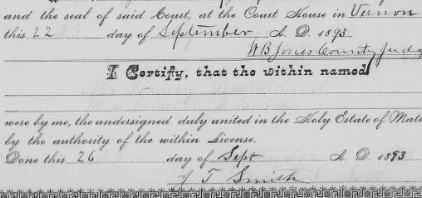 and the seal of said Court, at the Court House in Vernon
this 22 day of September, A. D. 1893.
W B Jones County Judg
I Certify, that the within named
were by me, the undersigned duly united in the Holy Estate of Mat
by the authority of the within License.
Done this 26 day of Sept A. D. 1893
J T Smith